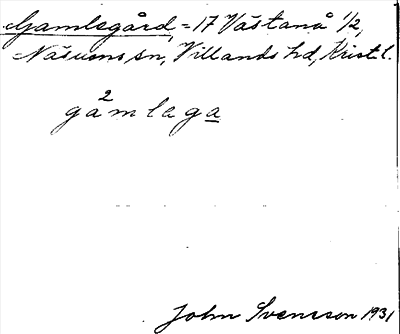 Gamlegård, = 17 Västanå 1/2,
Näsums sn, Villands hd, Krist. l.
gå²mlaga
John Svensson 1931